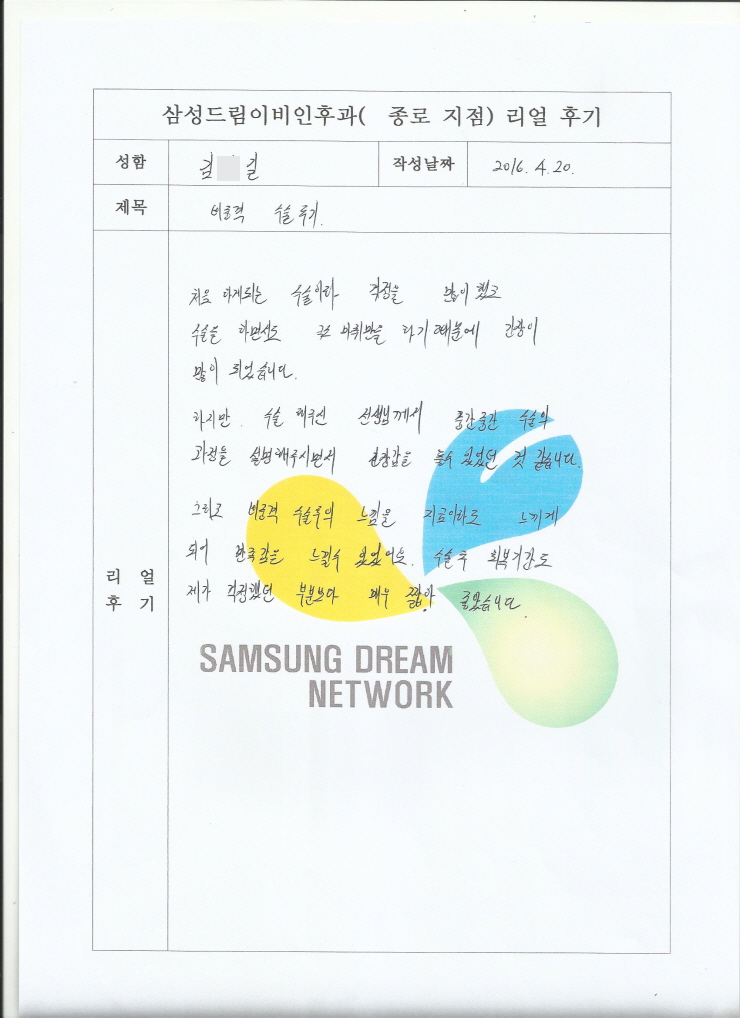 삼성드림이비인후과( 종로 지점) 리얼 후기
성함 김 길 작성날짜 2016. 4. 20.
제목 비중격 수술 후기.
처음 하게되는 수술이라 걱정을 많이 했고
수술을 하면서도 국소 마취만을 하기 때문에 긴장이
많이 되었습니다.
하지만 수술 해주신 선생님께서 중간중간 수술의
과정을 설명해주시면서 안정감을 들수 있었던 것 같습니다.
그리고 비중격 수술후의 느낌을 지금이라도 느끼게
되어 만족감을 느낄수 있었어요. 수술 후 회복기간도
리 얼
후 기
제가 걱정했던 부분보다 매우 짧아 좋았습니다.
SAMSUNG DREAM
NETWORK